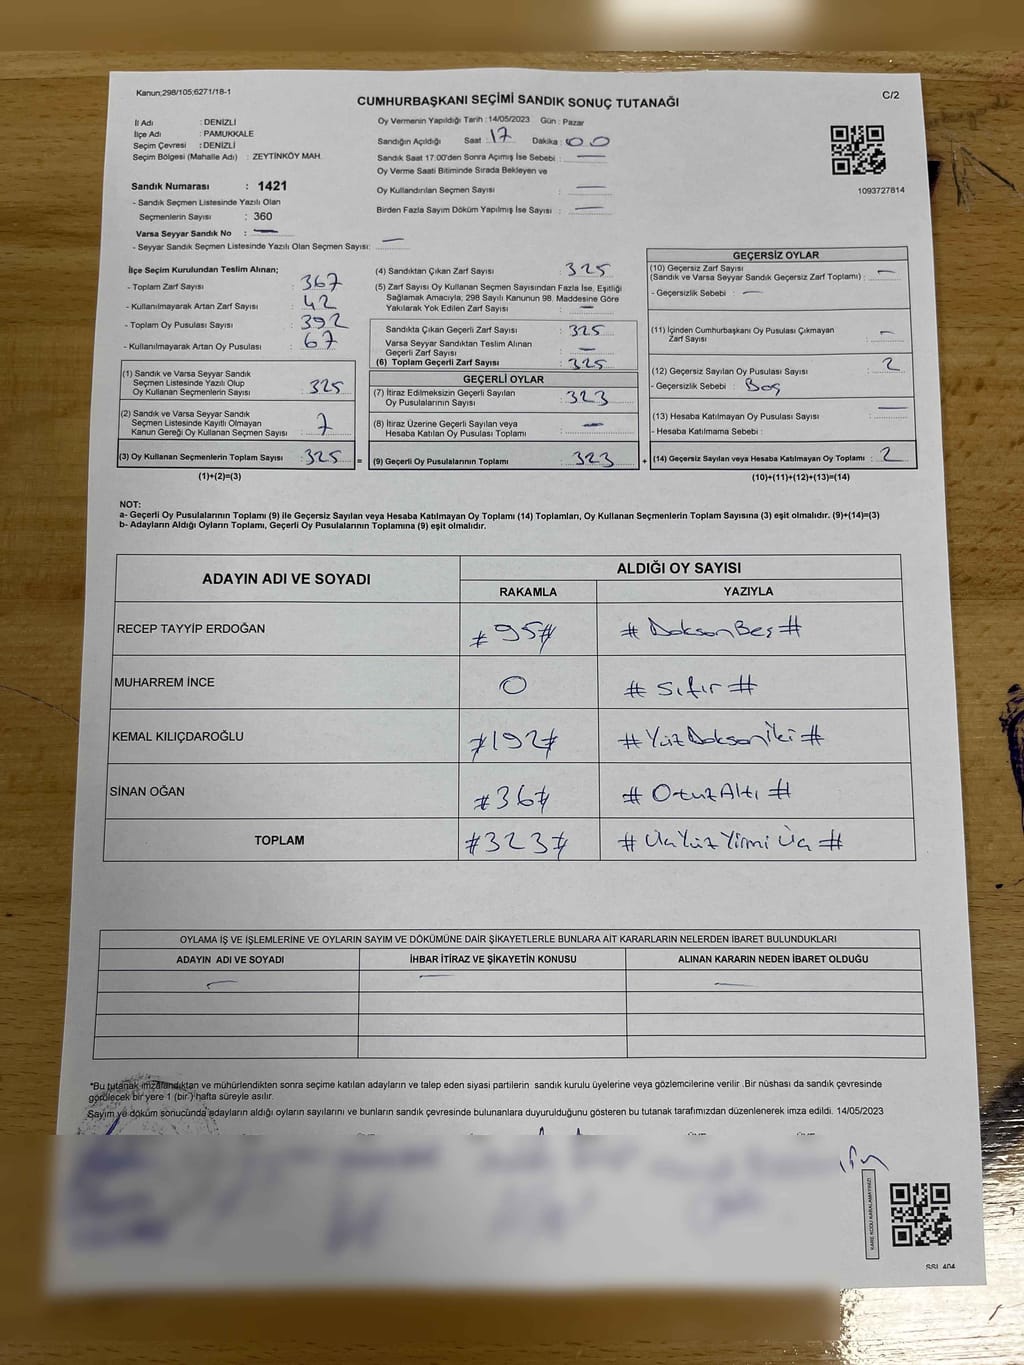 Kanun;298/105;6271/18-1
C/2
CUMHURBAŞKANI SEÇİMİ SANDIK SONUÇ TUTANAĞI
İl Adı : DENİZLİ
İlçe Adı : PAMUKKALE
Seçim Çevresi : DENİZLİ
Seçim Bölgesi (Mahalle Adı) : ZEYTİNKÖY MAH.
Sandık Numarası : 1421
- Sandık Seçmen Listesinde Yazılı Olan
Seçmenlerin Sayısı : 360
Varsa Seyyar Sandık No : —
- Seyyar Sandık Seçmen Listesinde Yazılı Olan Seçmen Sayısı: —
Oy Vermenin Yapıldığı Tarih : 14/05/2023 Gün : Pazar
Sandığın Açıldığı Saat : 17 Dakika : 00
Sandık Saat 17.00'den Sonra Açımış İse Sebebi : —
Oy Verme Saati Bitiminde Sırada Bekleyen ve
Oy Kullandırılan Seçmen Sayısı : —
Birden Fazla Sayım Döküm Yapılmış İse Sayısı : —
1093727814
İlçe Seçim Kurulundan Teslim Alınan;
- Toplam Zarf Sayısı : 367
- Kullanılmayarak Artan Zarf Sayısı : 42
- Toplam Oy Pusulası Sayısı : 392
- Kullanılmayarak Artan Oy Pusulası : 67
(1) Sandık ve Varsa Seyyar Sandık
Seçmen Listesinde Yazılı Olup
Oy Kullanan Seçmenlerin Sayısı : 325
(2) Sandık ve Varsa Seyyar Sandık
Seçmen Listesinde Kayıtlı Olmayan
Kanun Gereği Oy Kullanan Seçmen Sayısı : 7
(3) Oy Kullanan Seçmenlerin Toplam Sayısı : 325 =
(1)+(2)=(3)
(4) Sandıktan Çıkan Zarf Sayısı : 325
(5) Zarf Sayısı Oy Kullanan Seçmen Sayısından Fazla İse, Eşitliği
Sağlamak Amacıyla, 298 Sayılı Kanunun 98. Maddesine Göre
Yakılarak Yok Edilen Zarf Sayısı : —
Sandıkta Çıkan Geçerli Zarf Sayısı : 325
Varsa Seyyar Sandıktan Teslim Alınan
Geçerli Zarf Sayısı : —
(6) Toplam Geçerli Zarf Sayısı : 325
GEÇERLİ OYLAR
(7) İtiraz Edilmeksizin Geçerli Sayılan
Oy Pusulalarının Sayısı : 323
(8) İtiraz Üzerine Geçerli Sayılan veya
Hesaba Katılan Oy Pusulaları Toplamı : —
(9) Geçerli Oy Pusulalarının Toplamı : 323 +
GEÇERSİZ OYLAR
(10) Geçersiz Zarf Sayısı
(Sandık ve Varsa Seyyar Sandık Geçersiz Zarf Toplamı) : —
- Geçersizlik Sebebi : —
(11) İçinden Cumhurbaşkanı Oy Pusulası Çıkmayan
Zarf Sayısı : —
(12) Geçersiz Sayılan Oy Pusulası Sayısı : 2
- Geçersizlik Sebebi : Boş
(13) Hesaba Katılmayan Oy Pusulası Sayısı : —
- Hesaba Katılmama Sebebi :
(14) Geçersiz Sayılan veya Hesaba Katılmayan Oy Toplamı : 2
(10)+(11)+(12)+(13)=(14)
NOT:
a- Geçerli Oy Pusulalarının Toplamı (9) ile Geçersiz Sayılan veya Hesaba Katılmayan Oy Toplamı (14) Toplamları, Oy Kullanan Seçmenlerin Toplam Sayısına (3) eşit olmalıdır. (9)+(14)=(3)
b- Adayların Aldığı Oyların Toplamı, Geçerli Oy Pusulalarının Toplamına (9) eşit olmalıdır.
ADAYIN ADI VE SOYADI ALDIĞI OY SAYISI
RAKAMLA YAZIYLA
RECEP TAYYİP ERDOĞAN #95# #DoksanBeş#
MUHARREM İNCE 0 #Sıfır#
KEMAL KILIÇDAROĞLU #192# #YüzDoksanİki#
SİNAN OĞAN #36# #OtuzAltı#
TOPLAM #323# #ÜçYüzYirmiÜç#
OYLAMA İŞ VE İŞLEMLERİNE VE OYLARIN SAYIM VE DÖKÜMÜNE DAİR ŞİKAYETLERLE BUNLARA AİT KARARLARIN NELERDEN İBARET BULUNDUKLARI
ADAYIN ADI VE SOYADI İHBAR İTİRAZ VE ŞİKAYETİN KONUSU ALINAN KARARIN NEDEN İBARET OLDUĞU
— — —
*Bu tutanak imzalandıktan ve mühürlendikten sonra seçime katılan adayların ve talep eden siyasi partilerin sandık kurulu üyelerine veya gözlemcilerine verilir .Bir nüshası da sandık çevresinde
görülecek bir yere 1 (bir ) hafta süreyle asılır.
Sayım ve döküm sonucunda adayların aldığı oyların sayılarını ve bunların sandık çevresinde bulunanlara duyurulduğunu gösteren bu tutanak tarafımızdan düzenlenerek imza edildi. 14/05/2023
KARE KODU KARALAMAYINIZ!